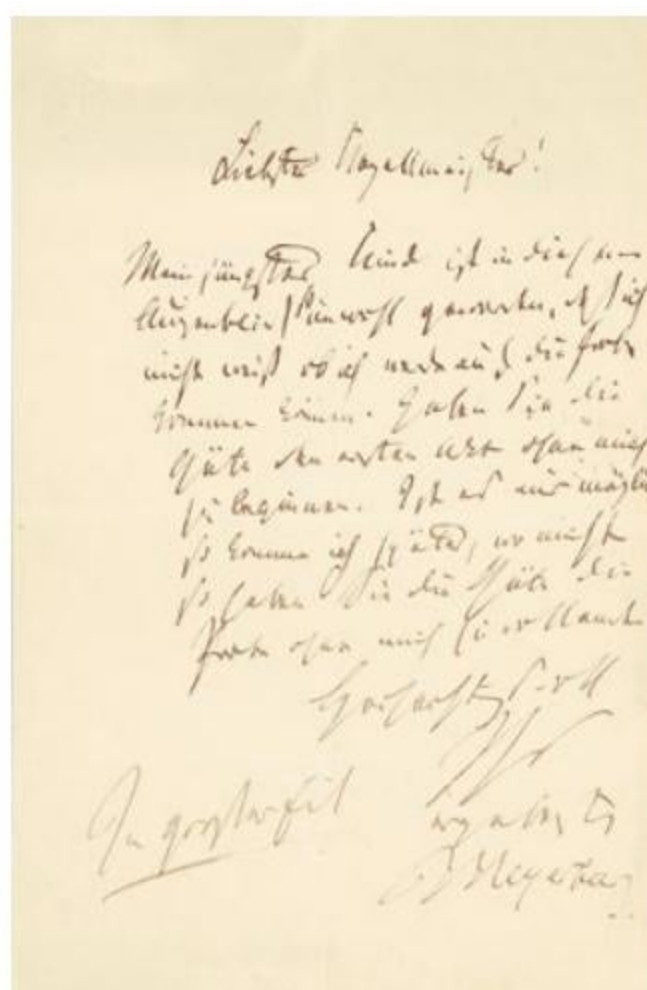 Liebster Kapellmeister!
Mein jüngstes Kind ist in diesem
Augenblick unwohl geworden, ich
nicht weiß ob ich werde auf die Probe
kommen können. Haben Sie die
Güte den ersten Akt ohne mich
zu beginnen. Ist es mir mögli
so komme ich später, wo nicht
so haben Sie die Güte die
Probe ohne mich zu
Hochachtungsvoll
Ihr
ergebenster
Meyerbeer
In größter Eil